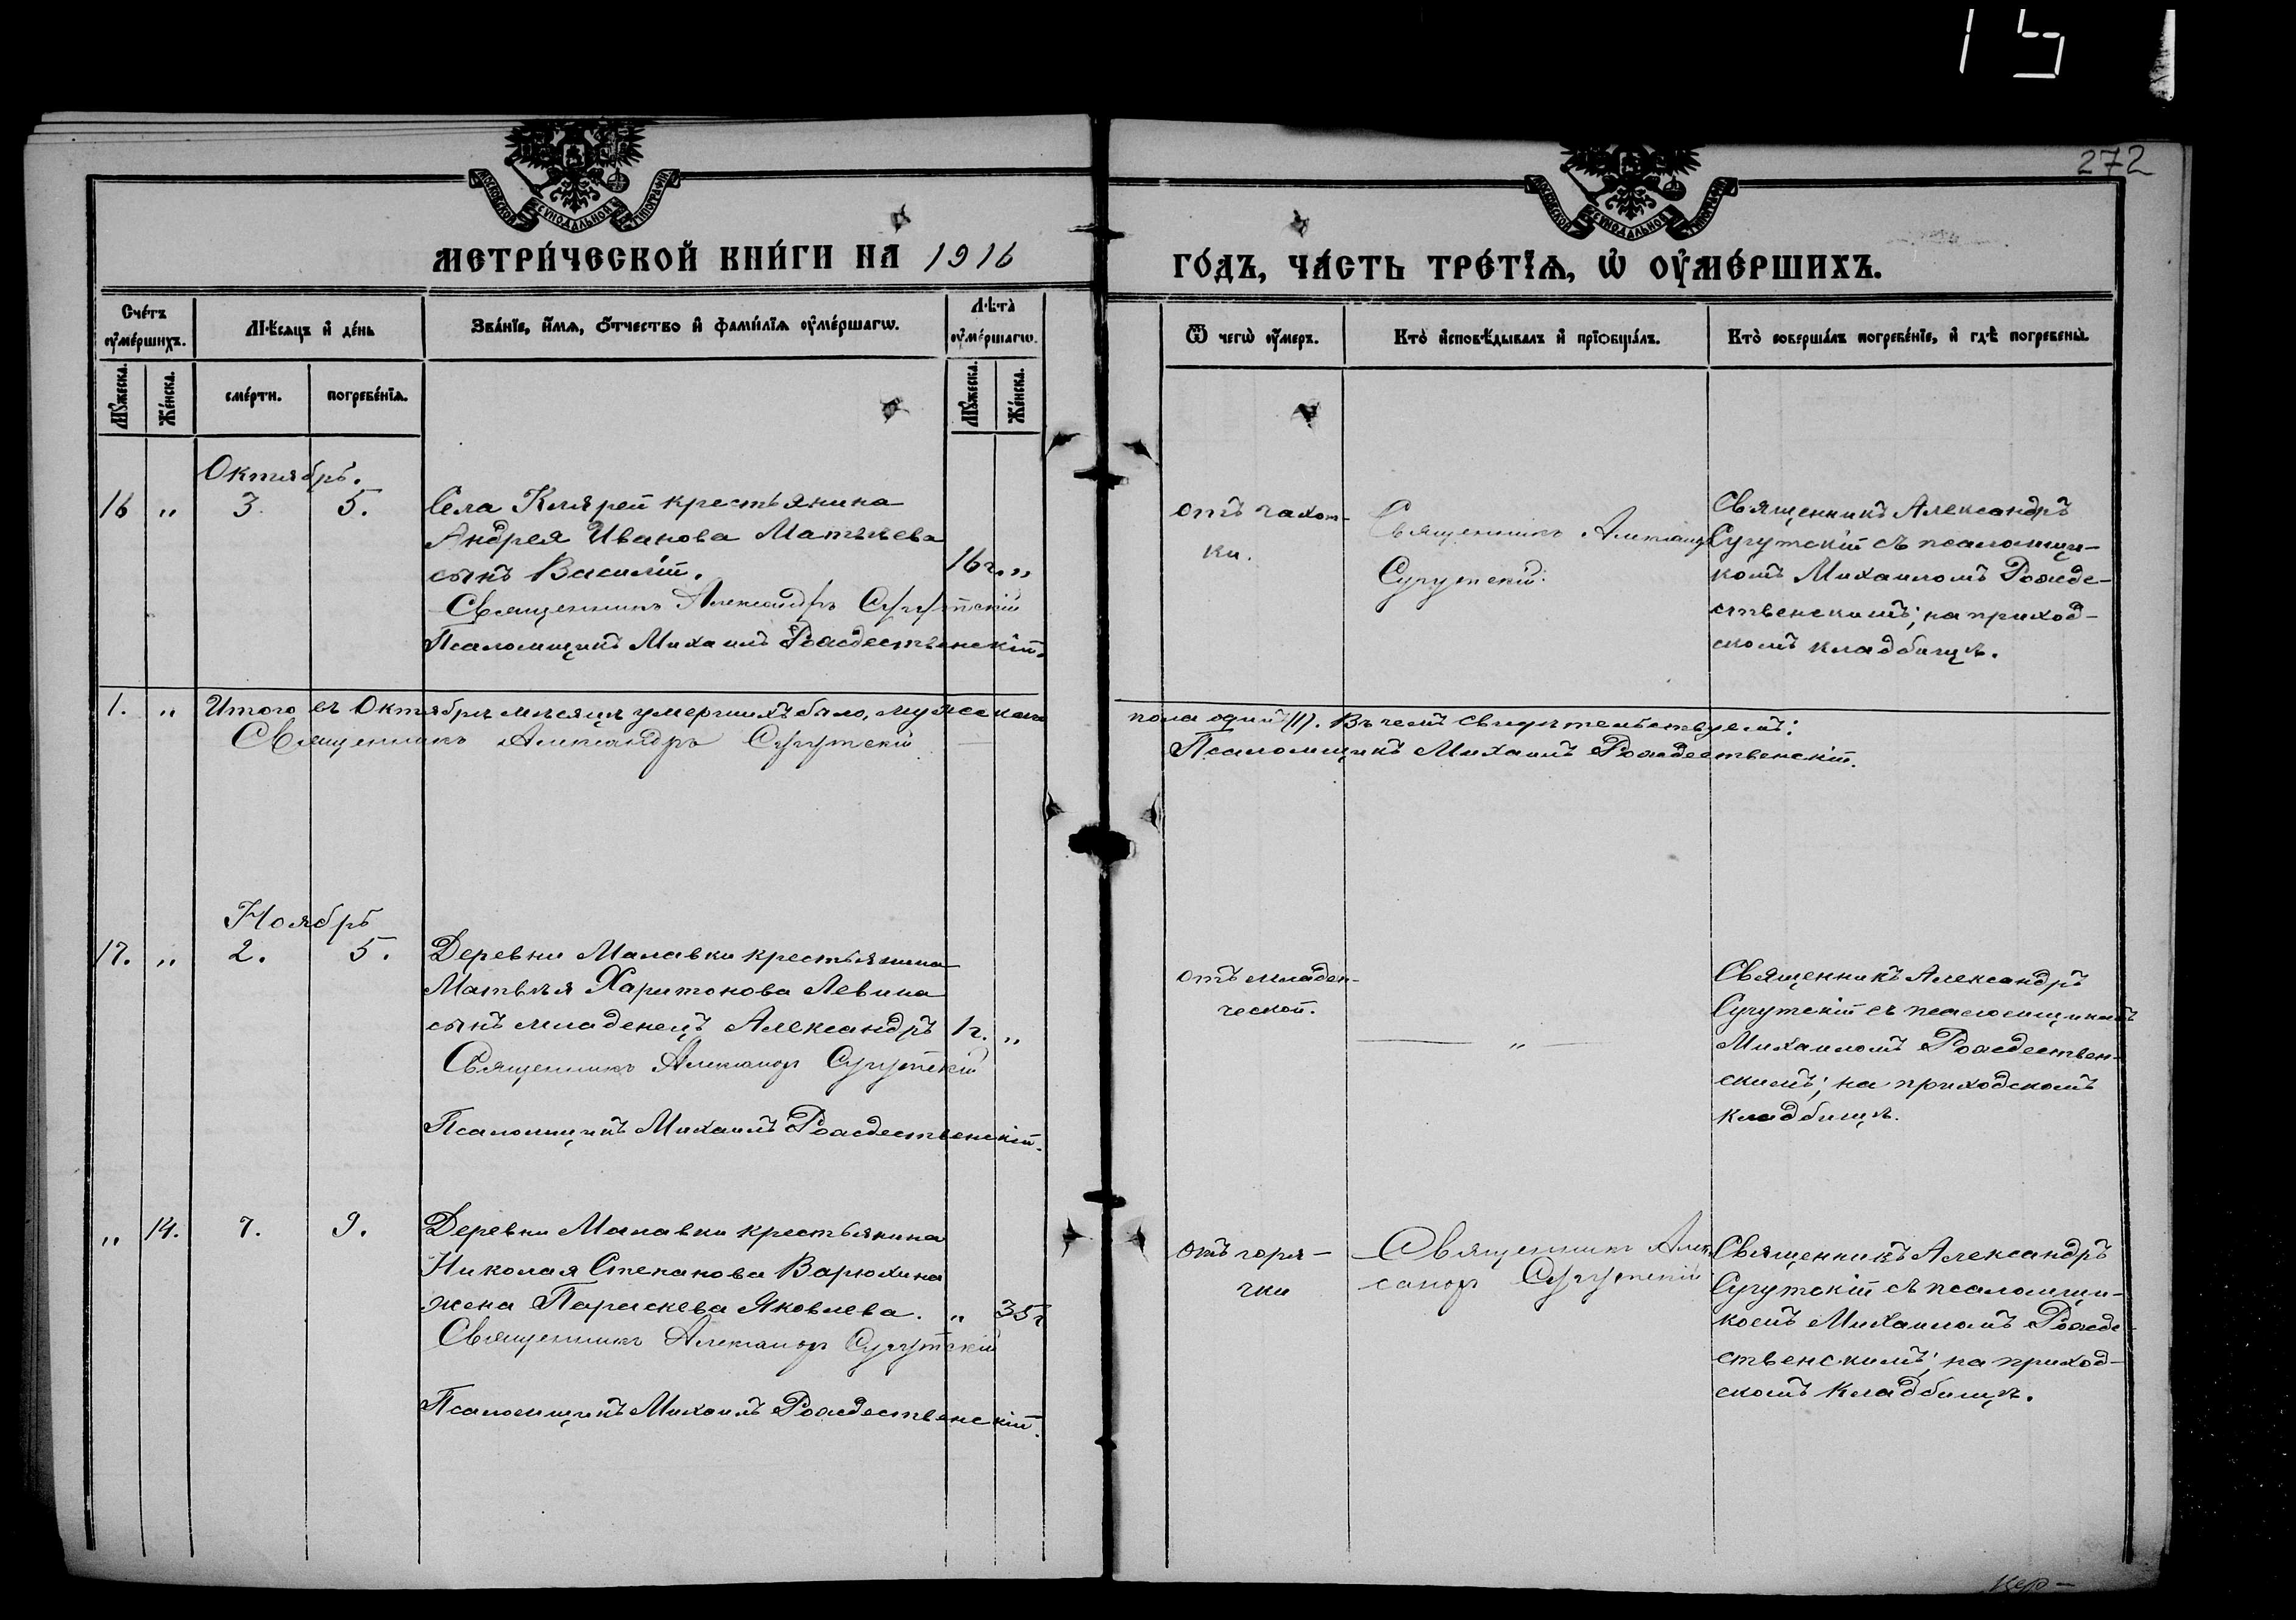 272
МОСКОВСКОЙ СѴНОДАЛЬНОЙ ТИПОГРАФІИ
МОСКОВСКОЙ СѴНОДАЛЬНОЙ ТИПОГРАФІИ
МЕТРИ́ЧЕСКОЙ КНИ́ГИ НА 1916
ГО́ДЪ, ЧА́СТЬ ТРЕ́ТЇѦ, Ѡ҆ ОУ҆МЕ́РШИХЪ.
Сче́тъ оу҆ме́ршихъ.
Мѣ́сяцъ и҆ де́нь
Зва́нїе, и҆́мѧ, ѻ҆́тчество и҆ фами́лїѧ оу҆ме́ршагѡ.
Лѣ́та̀ оу҆ме́ршагѡ.
Ѿ чегѡ̀ оу҆́меръ.
Кто̀ и҆сповѣ́дывалъ и҆ прїѻбща́лъ.
Кто̀ соверша́лъ погребе́нїе, и҆ гдѣ̀ погребены̀.
Мꙋ́жеска.
Же́нска.
сме́рти.
погребе́нїѧ.
Мꙋ́жеска.
Же́нска.
Октябрь.
16 „ 3. 5.
Села Клярей крестьянина
Андрея Иванова Матвѣева
сынъ Василій. 16 г. „
Священникъ Александръ Сугутскій
Псаломщикъ Михаилъ Рождественскій.
отъ чахот-
ки.
Священникъ Александръ
Сугутскій.
Священникъ Александръ
Сугутскій съ псаломщи-
комъ Михаиломъ Рожде-
ственскимъ; на приход-
скомъ кладбищѣ.
1. „ Итого въ Октябрѣ мѣсяцѣ умершихъ было, мужескаго
пола одинъ (1). Въ чемъ свидѣтельствуемъ:
Священникъ Александръ Сугутскій
Псаломщикъ Михаилъ Рождественскій.
Ноябрь
17. „ 2. 5.
Деревни Малавки крестьянина
Матвѣя Харитонова Левина
сынъ младенецъ Александръ 1 г. „
Священникъ Александръ Сугутскій
Псаломщикъ Михаилъ Рождественскій.
отъ младен-
ческой.
— „ —
Священникъ Александръ
Сугутскій съ псаломщикомъ
Михаиломъ Рождествен-
скимъ; на приходскомъ
кладбищѣ.
„ 14. 7. 9.
Деревни Малавки крестьянина
Николая Степанова Варюхина
жена Параскева Яковлева. „ 35 г
Священникъ Александръ Сугутскій
Псаломщикъ Михаилъ Рождественскій.
отъ горя-
чки
Священникъ Алек
сандръ Сугутскій
Священникъ Александръ
Сугутскій съ псаломщи-
комъ Михаиломъ Рожде
ственскимъ; на приход-
скомъ кладбищѣ.